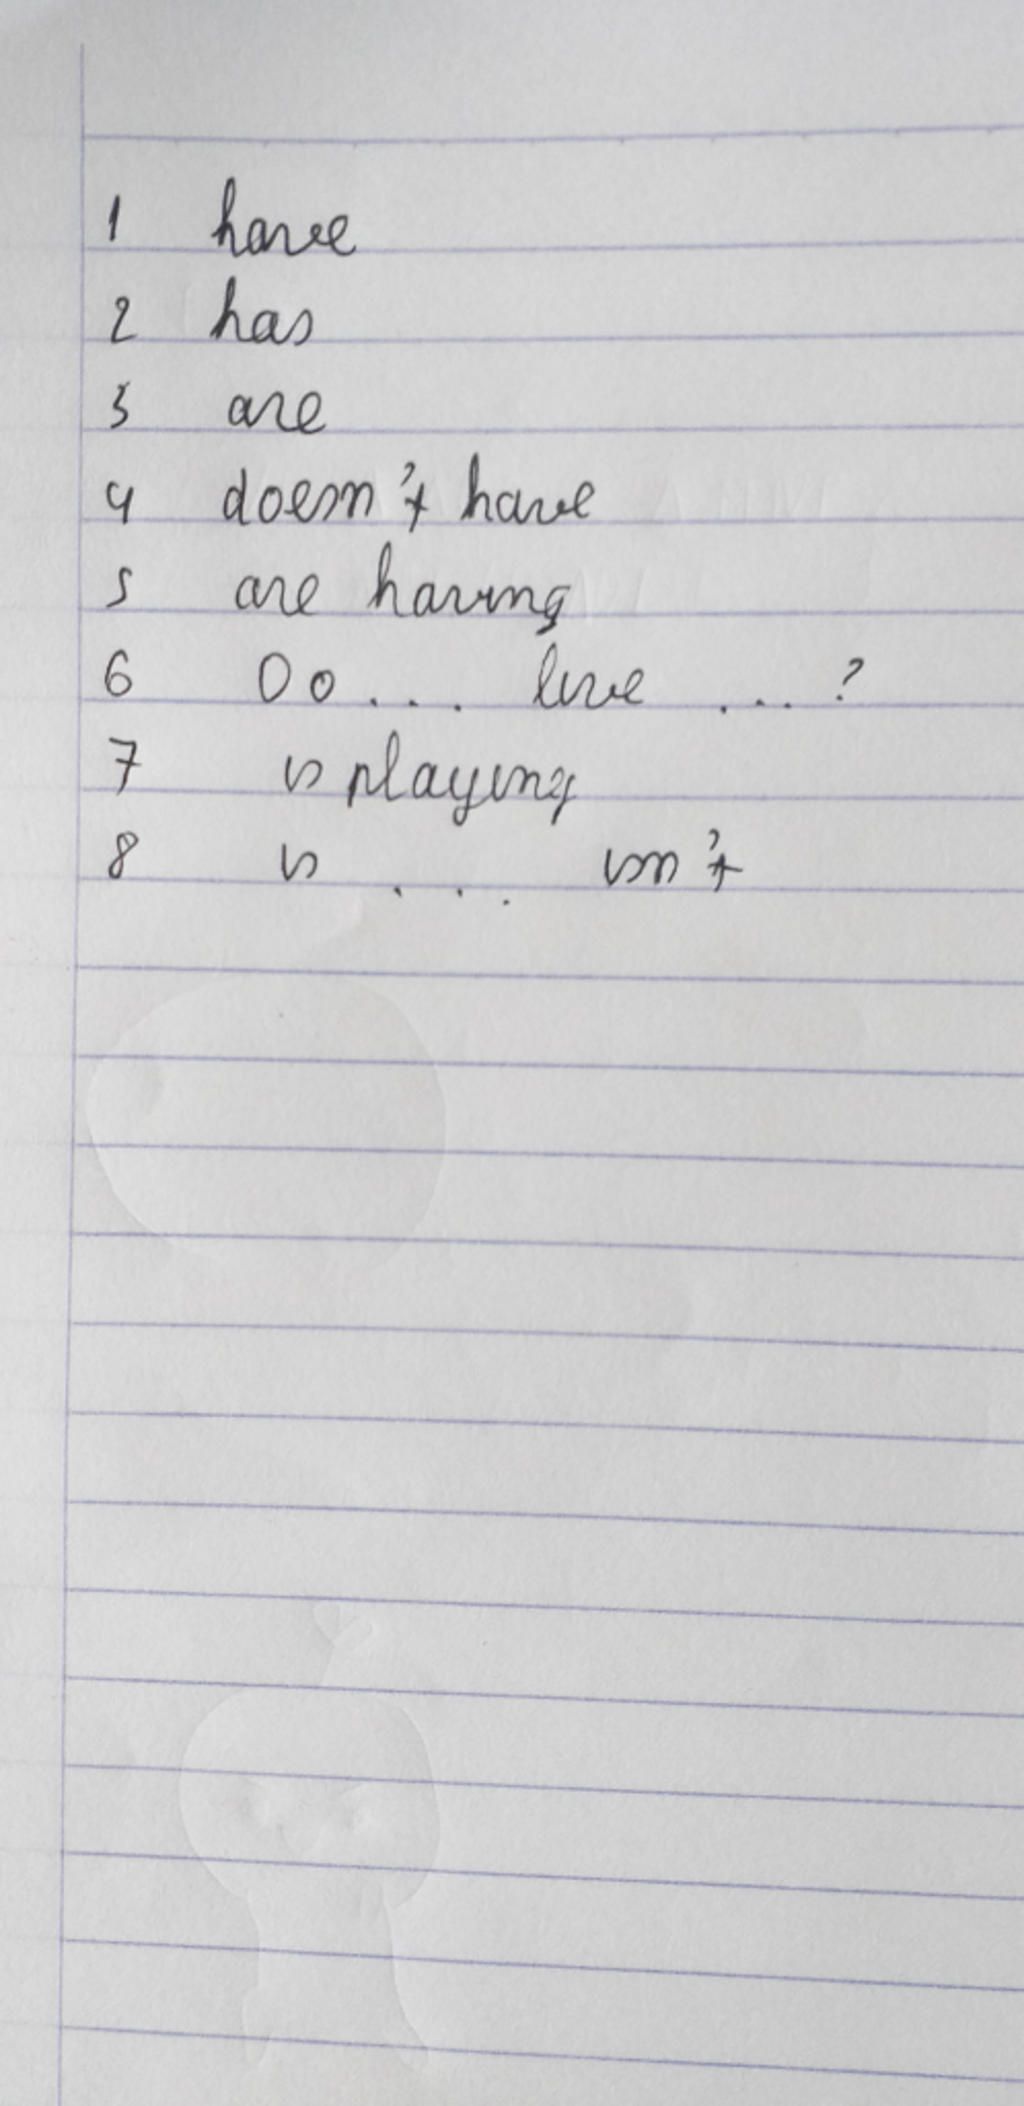 1 have
2 has
3 are
4 doesn't have
5 are having
6 Do ... live ...?
7 is playing
8 is ... isn't